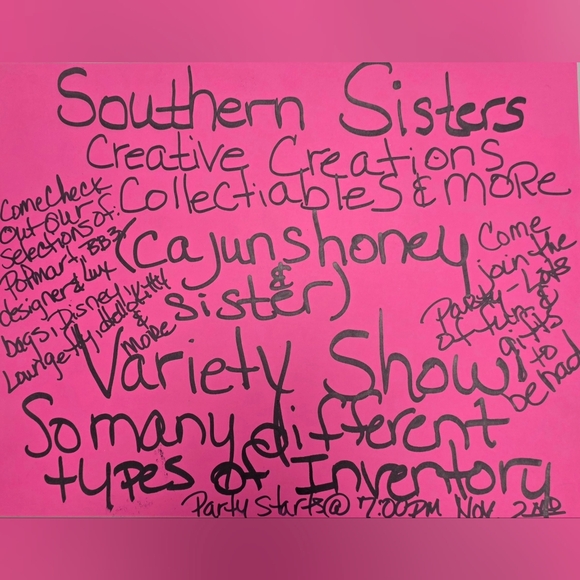 Southern Sisters
Creative Creations
Collectiables & more
(cajunshoney
&
sister)
Come Check
out our
selections of:
Popmart, BB3,
designer & lux
bags, Disney,
Loungefly, Hello Kitty
&
more
Come
join the
Party - Lots
of fun &
gifts
to
be had
Variety Show
So many different
types of Inventory
Party Starts @ 7:00PM Nov. 2nd